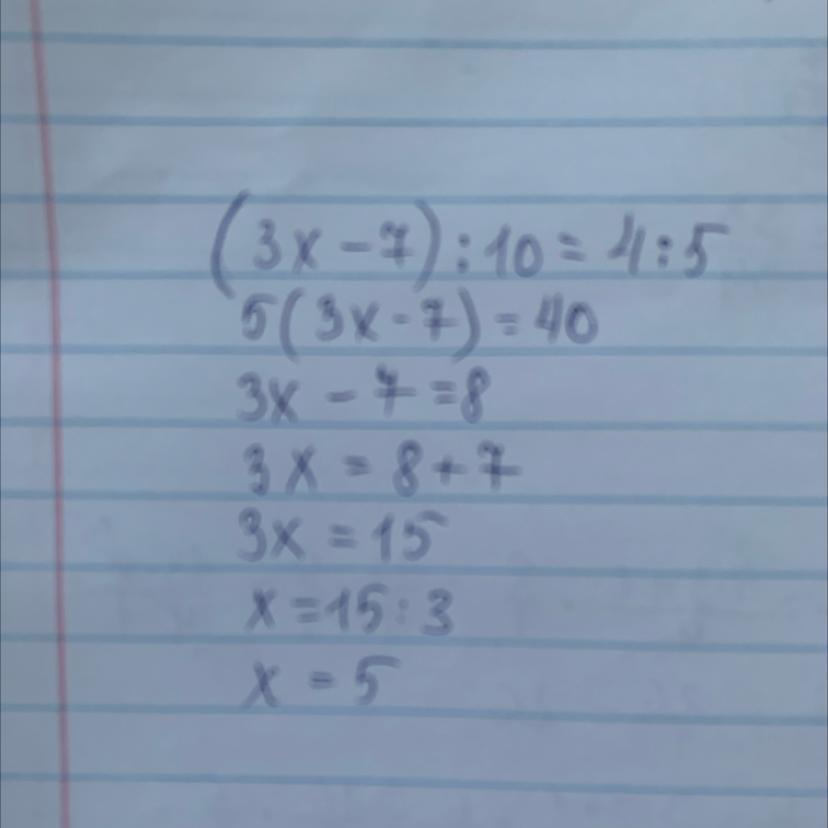 (3x - 7) : 10 = 4 : 5
5(3x - 7) = 40
3x - 7 = 8
3x = 8 + 7
3x = 15
x = 15 : 3
x = 5